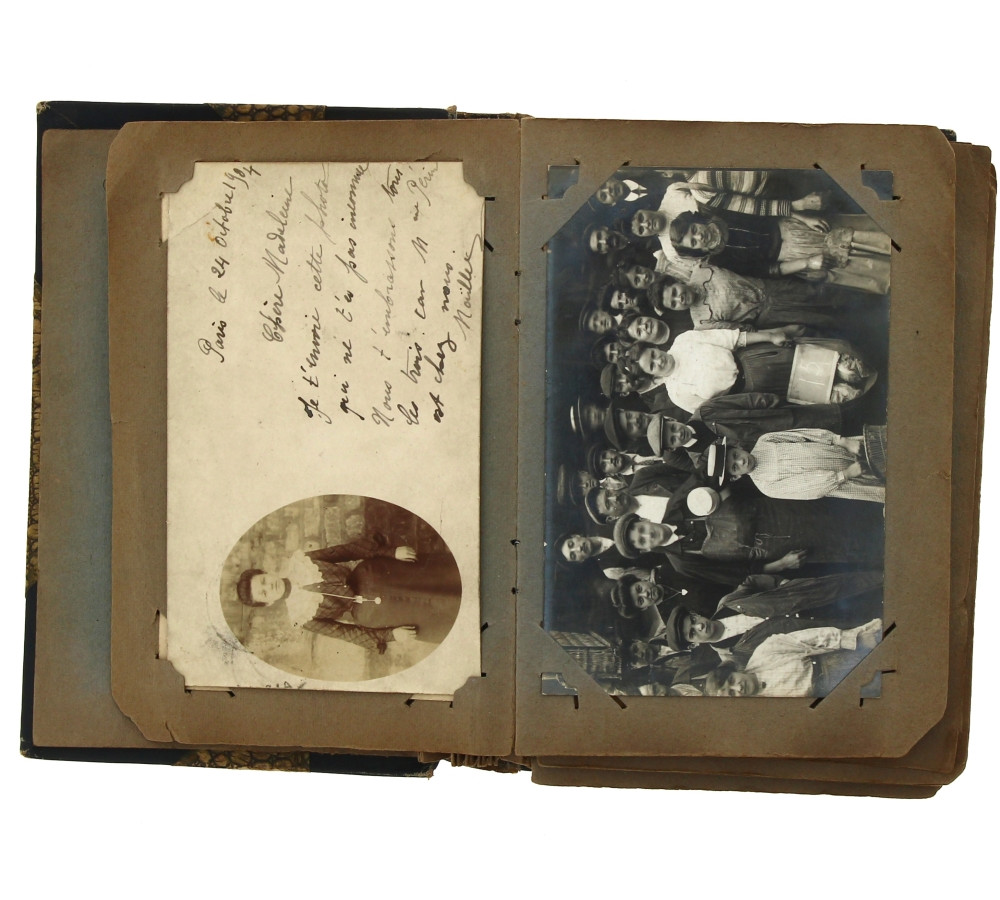 Paris le 24 Octobre 1904
Chère Madeleine
Je t'envoie cette photo
qui ne t'es pas inconnue
Nous t'embrassons tous
les trois car M
est chez nous.